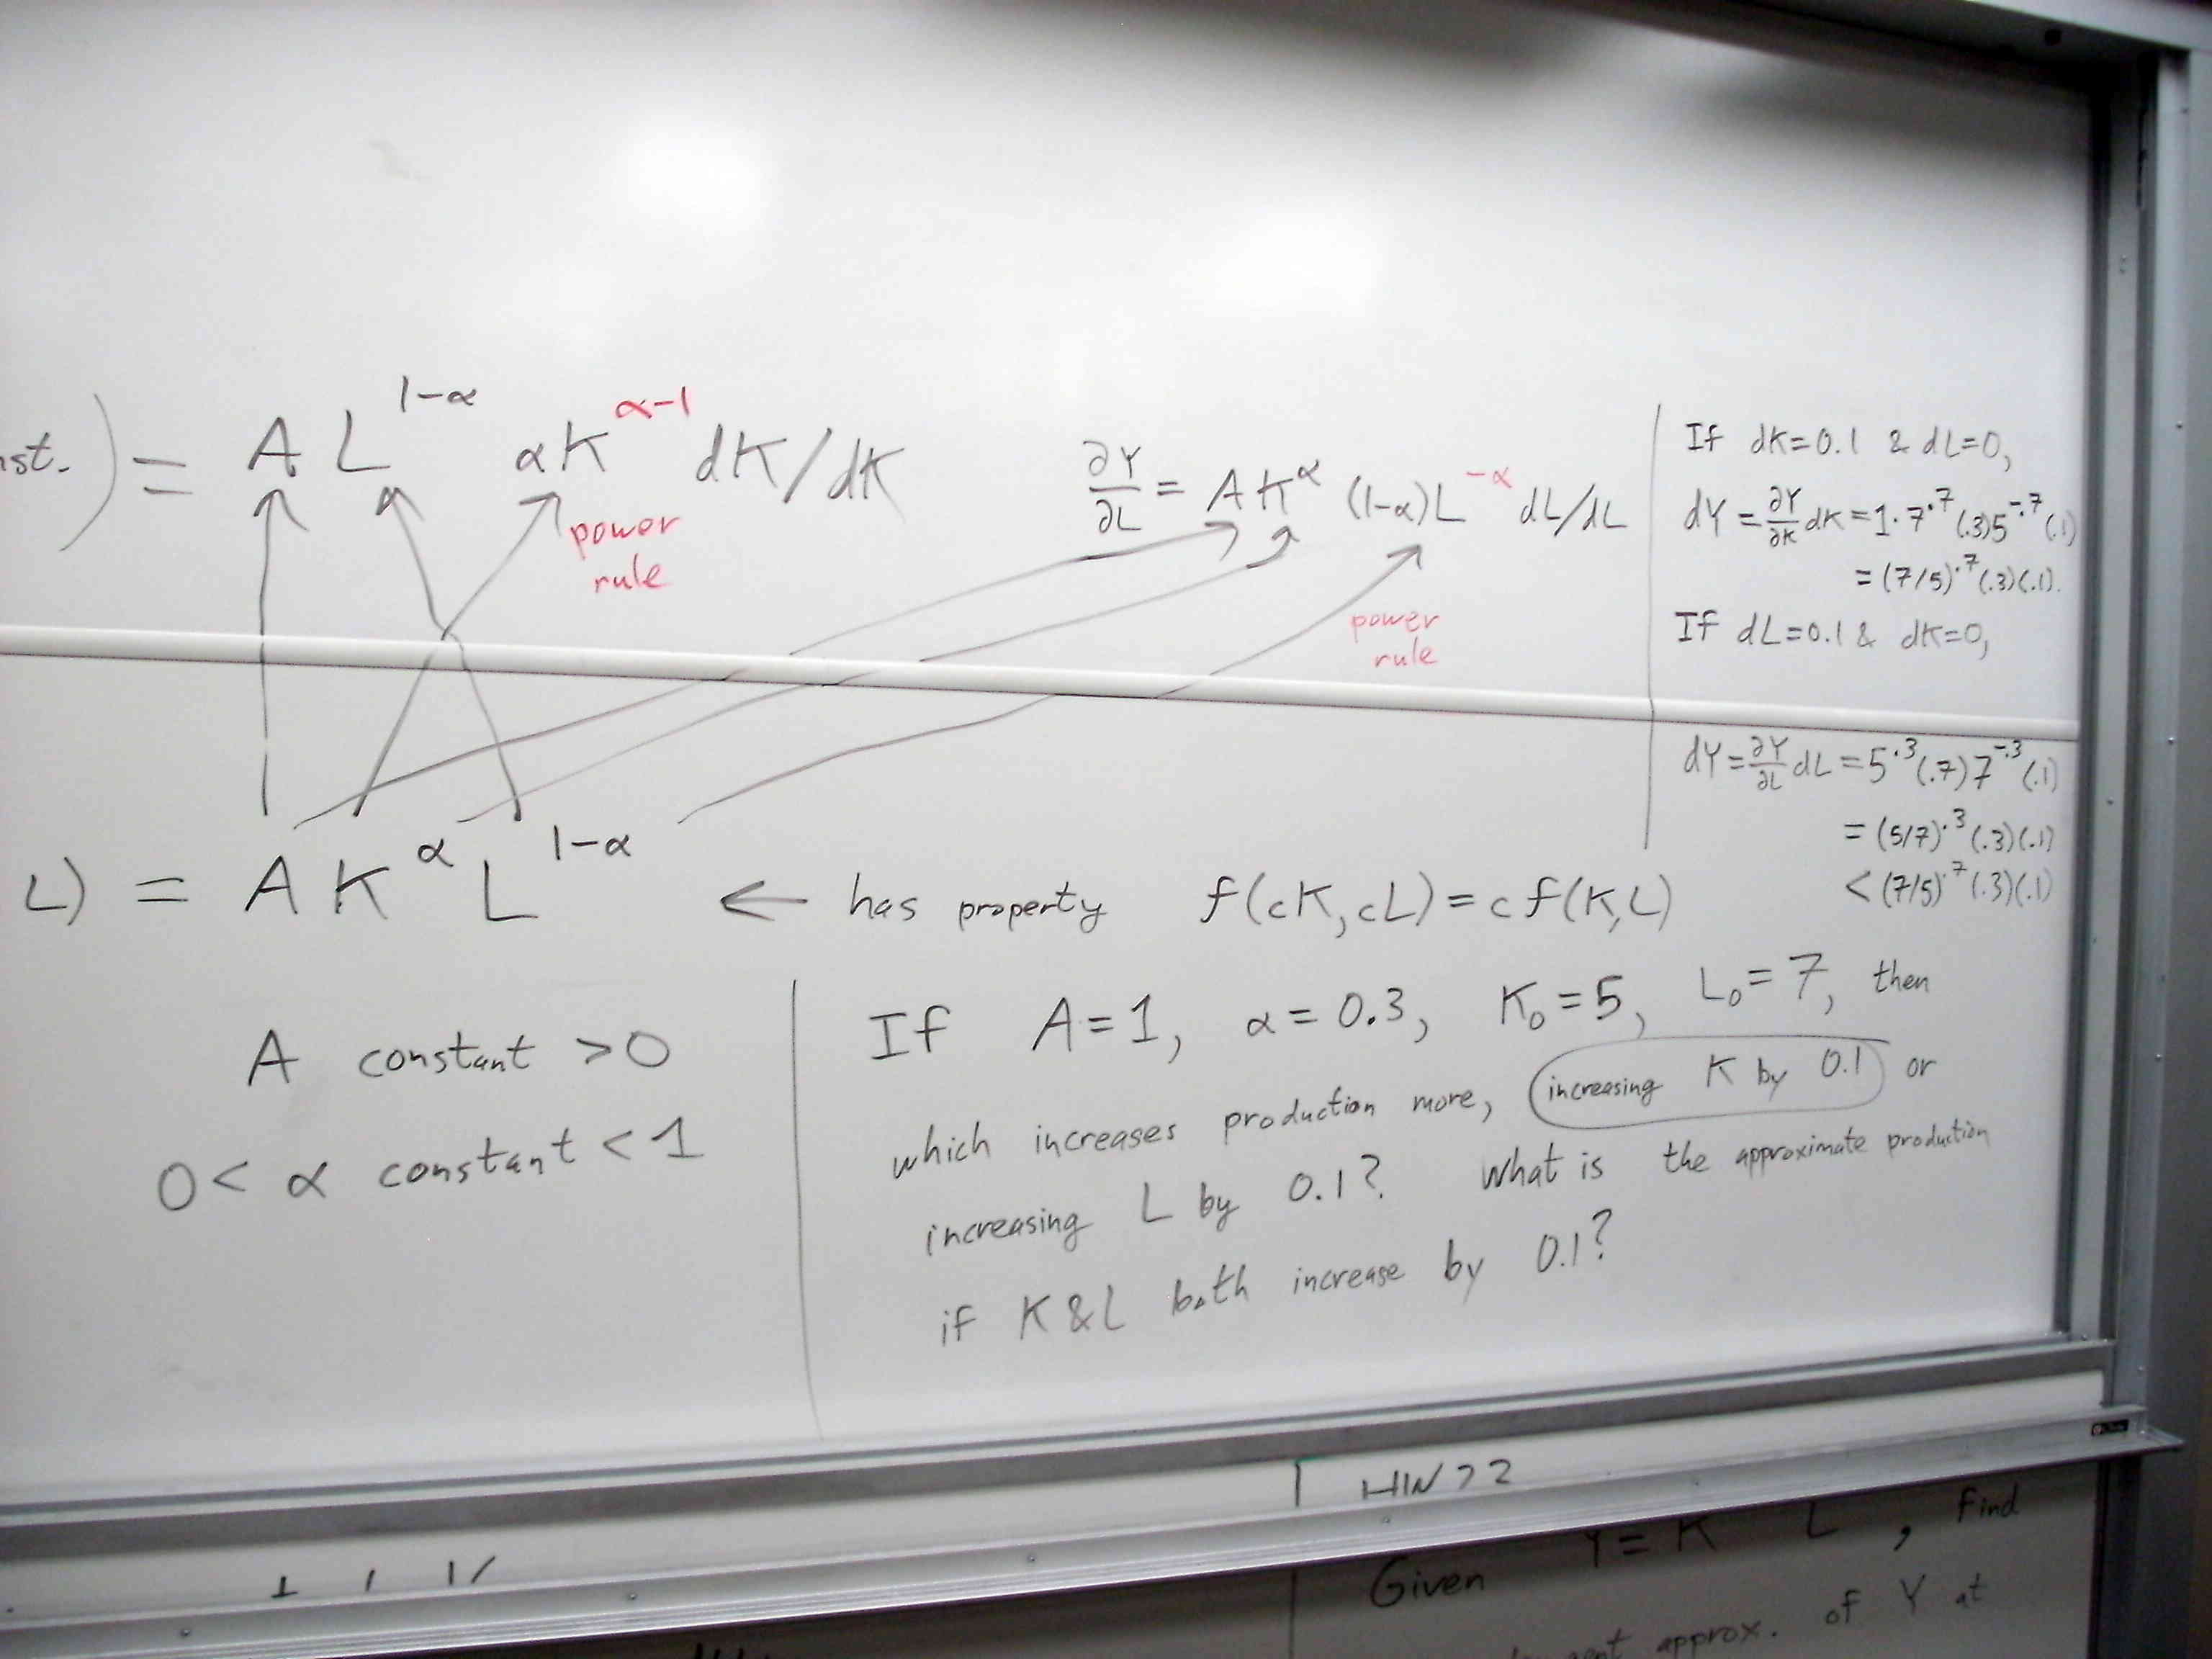 ) = A L^{1-α} αK^{α-1} dK/dK
power
rule
∂Y/∂L = A K^α (1-α) L^{-α} dL/dL
power
rule
If dK=0.1 & dL=0,
dY = ∂Y/∂K dK = 1·7^{.7} (.3) 5^{-.7} (.1)
= (7/5)^{.7} (.3)(.1).
If dL=0.1 & dK=0,
dY = ∂Y/∂L dL = 5^{.3} (.7) 7^{-.3} (.1)
= (5/7)^{.3} (.3)(.1)
< (7/5)^{.7} (.3)(.1)
L) = A K^α L^{1-α} ← has property f(cK,cL) = c f(K,L)
A constant >0
0< α constant < 1
If A=1, α=0.3, K₀=5, L₀=7, then
which increases production more, increasing K by 0.1 or
increasing L by 0.1? What is the approximate production
if K & L both increase by 0.1?
Given Y= K L , find
approx. of Y at